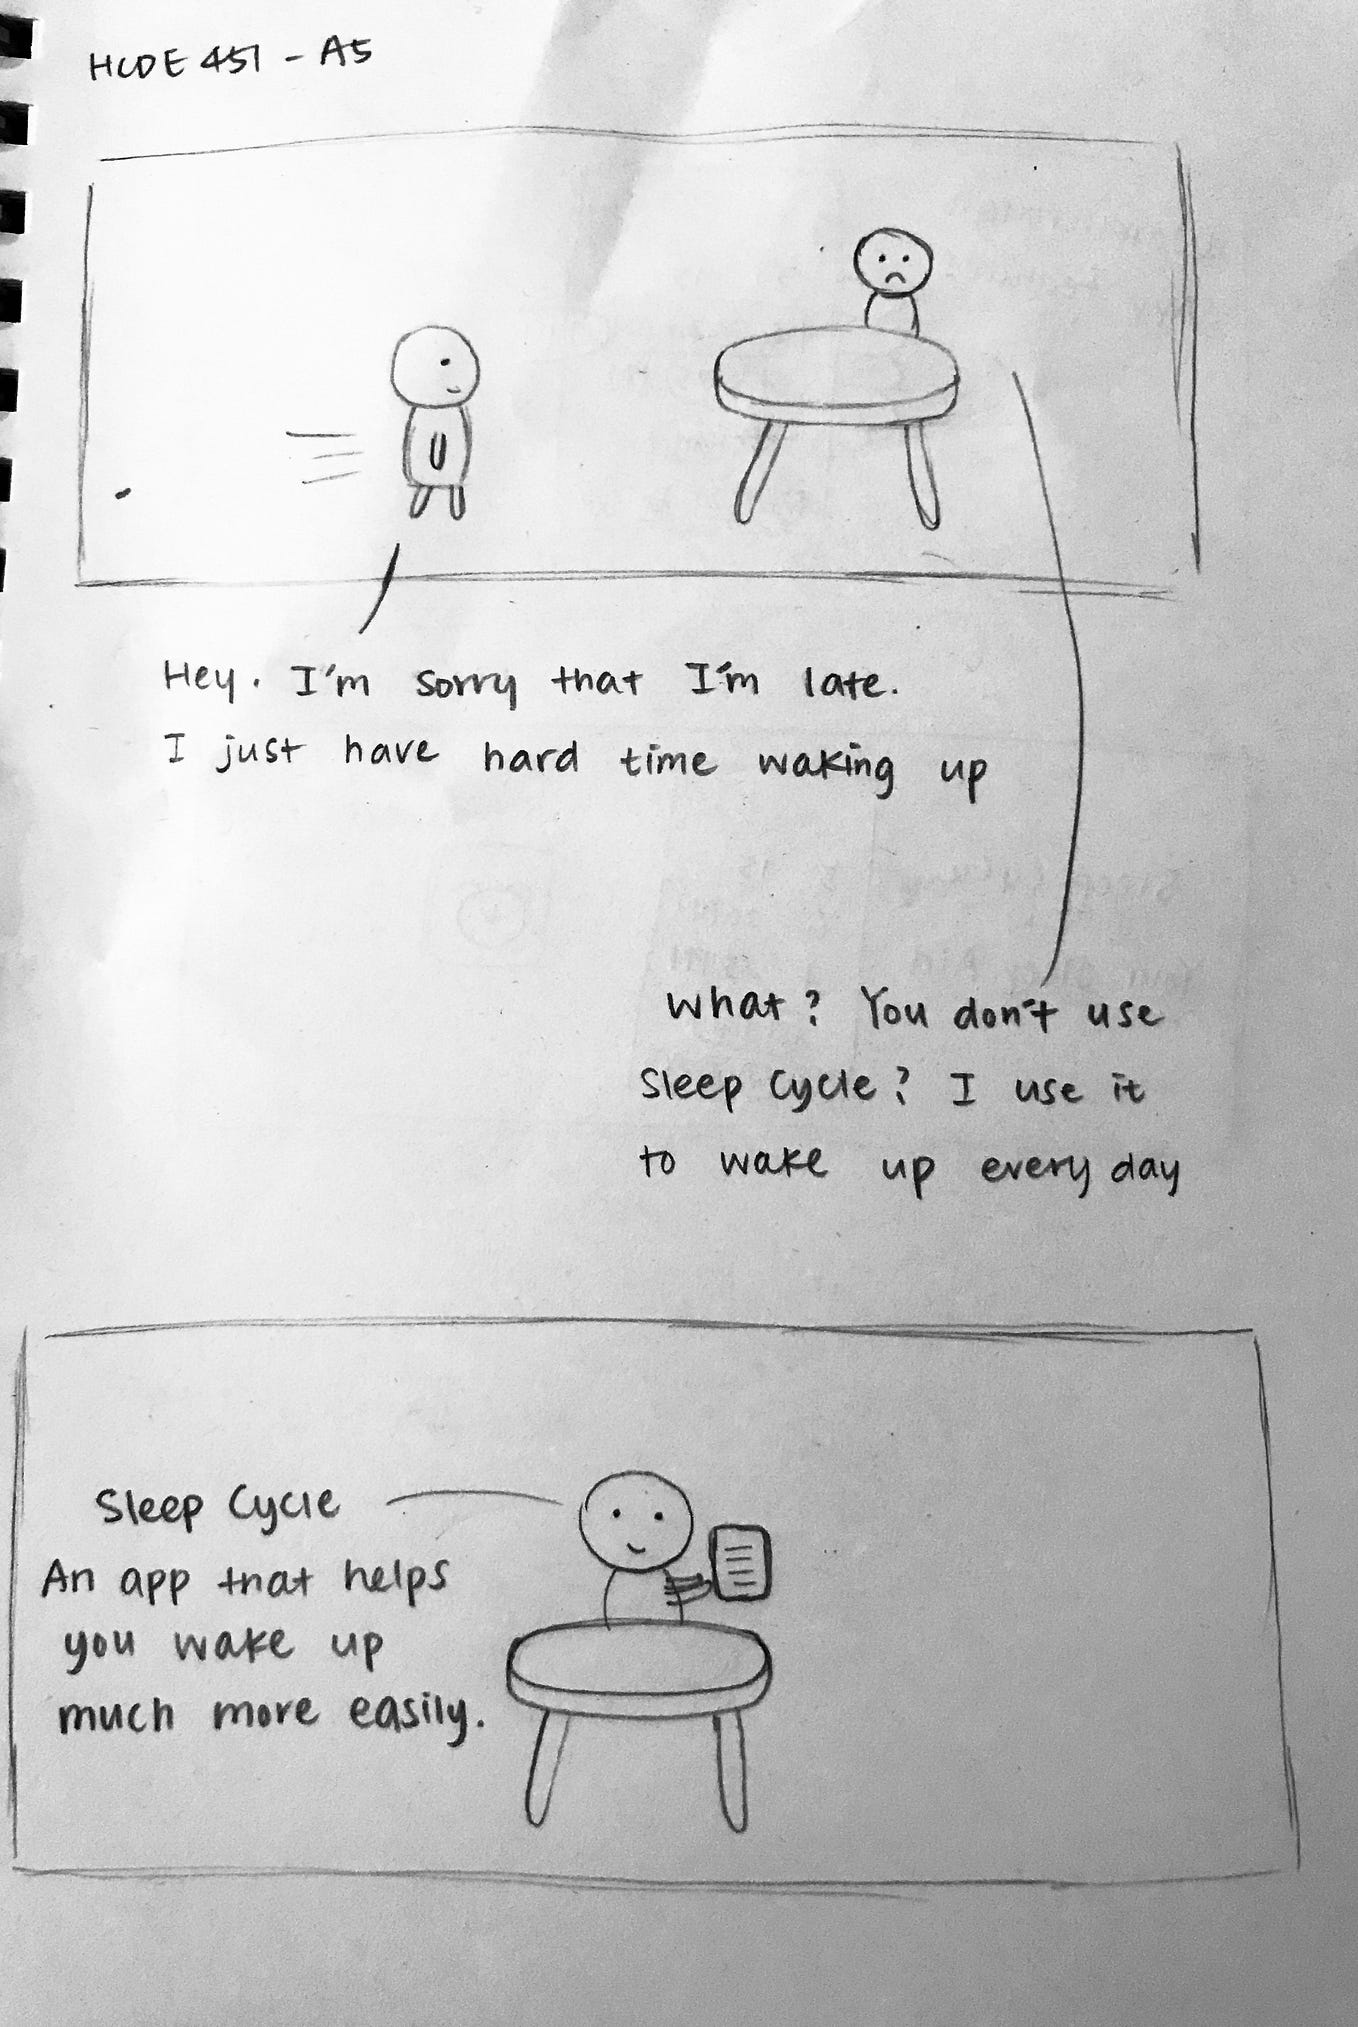 HCDE 451 - A5
Hey. I'm sorry that I'm late.
I just have hard time waking up
What? You don't use
Sleep Cycle? I use it
to wake up every day
Sleep Cycle
An app that helps
you wake up
much more easily.